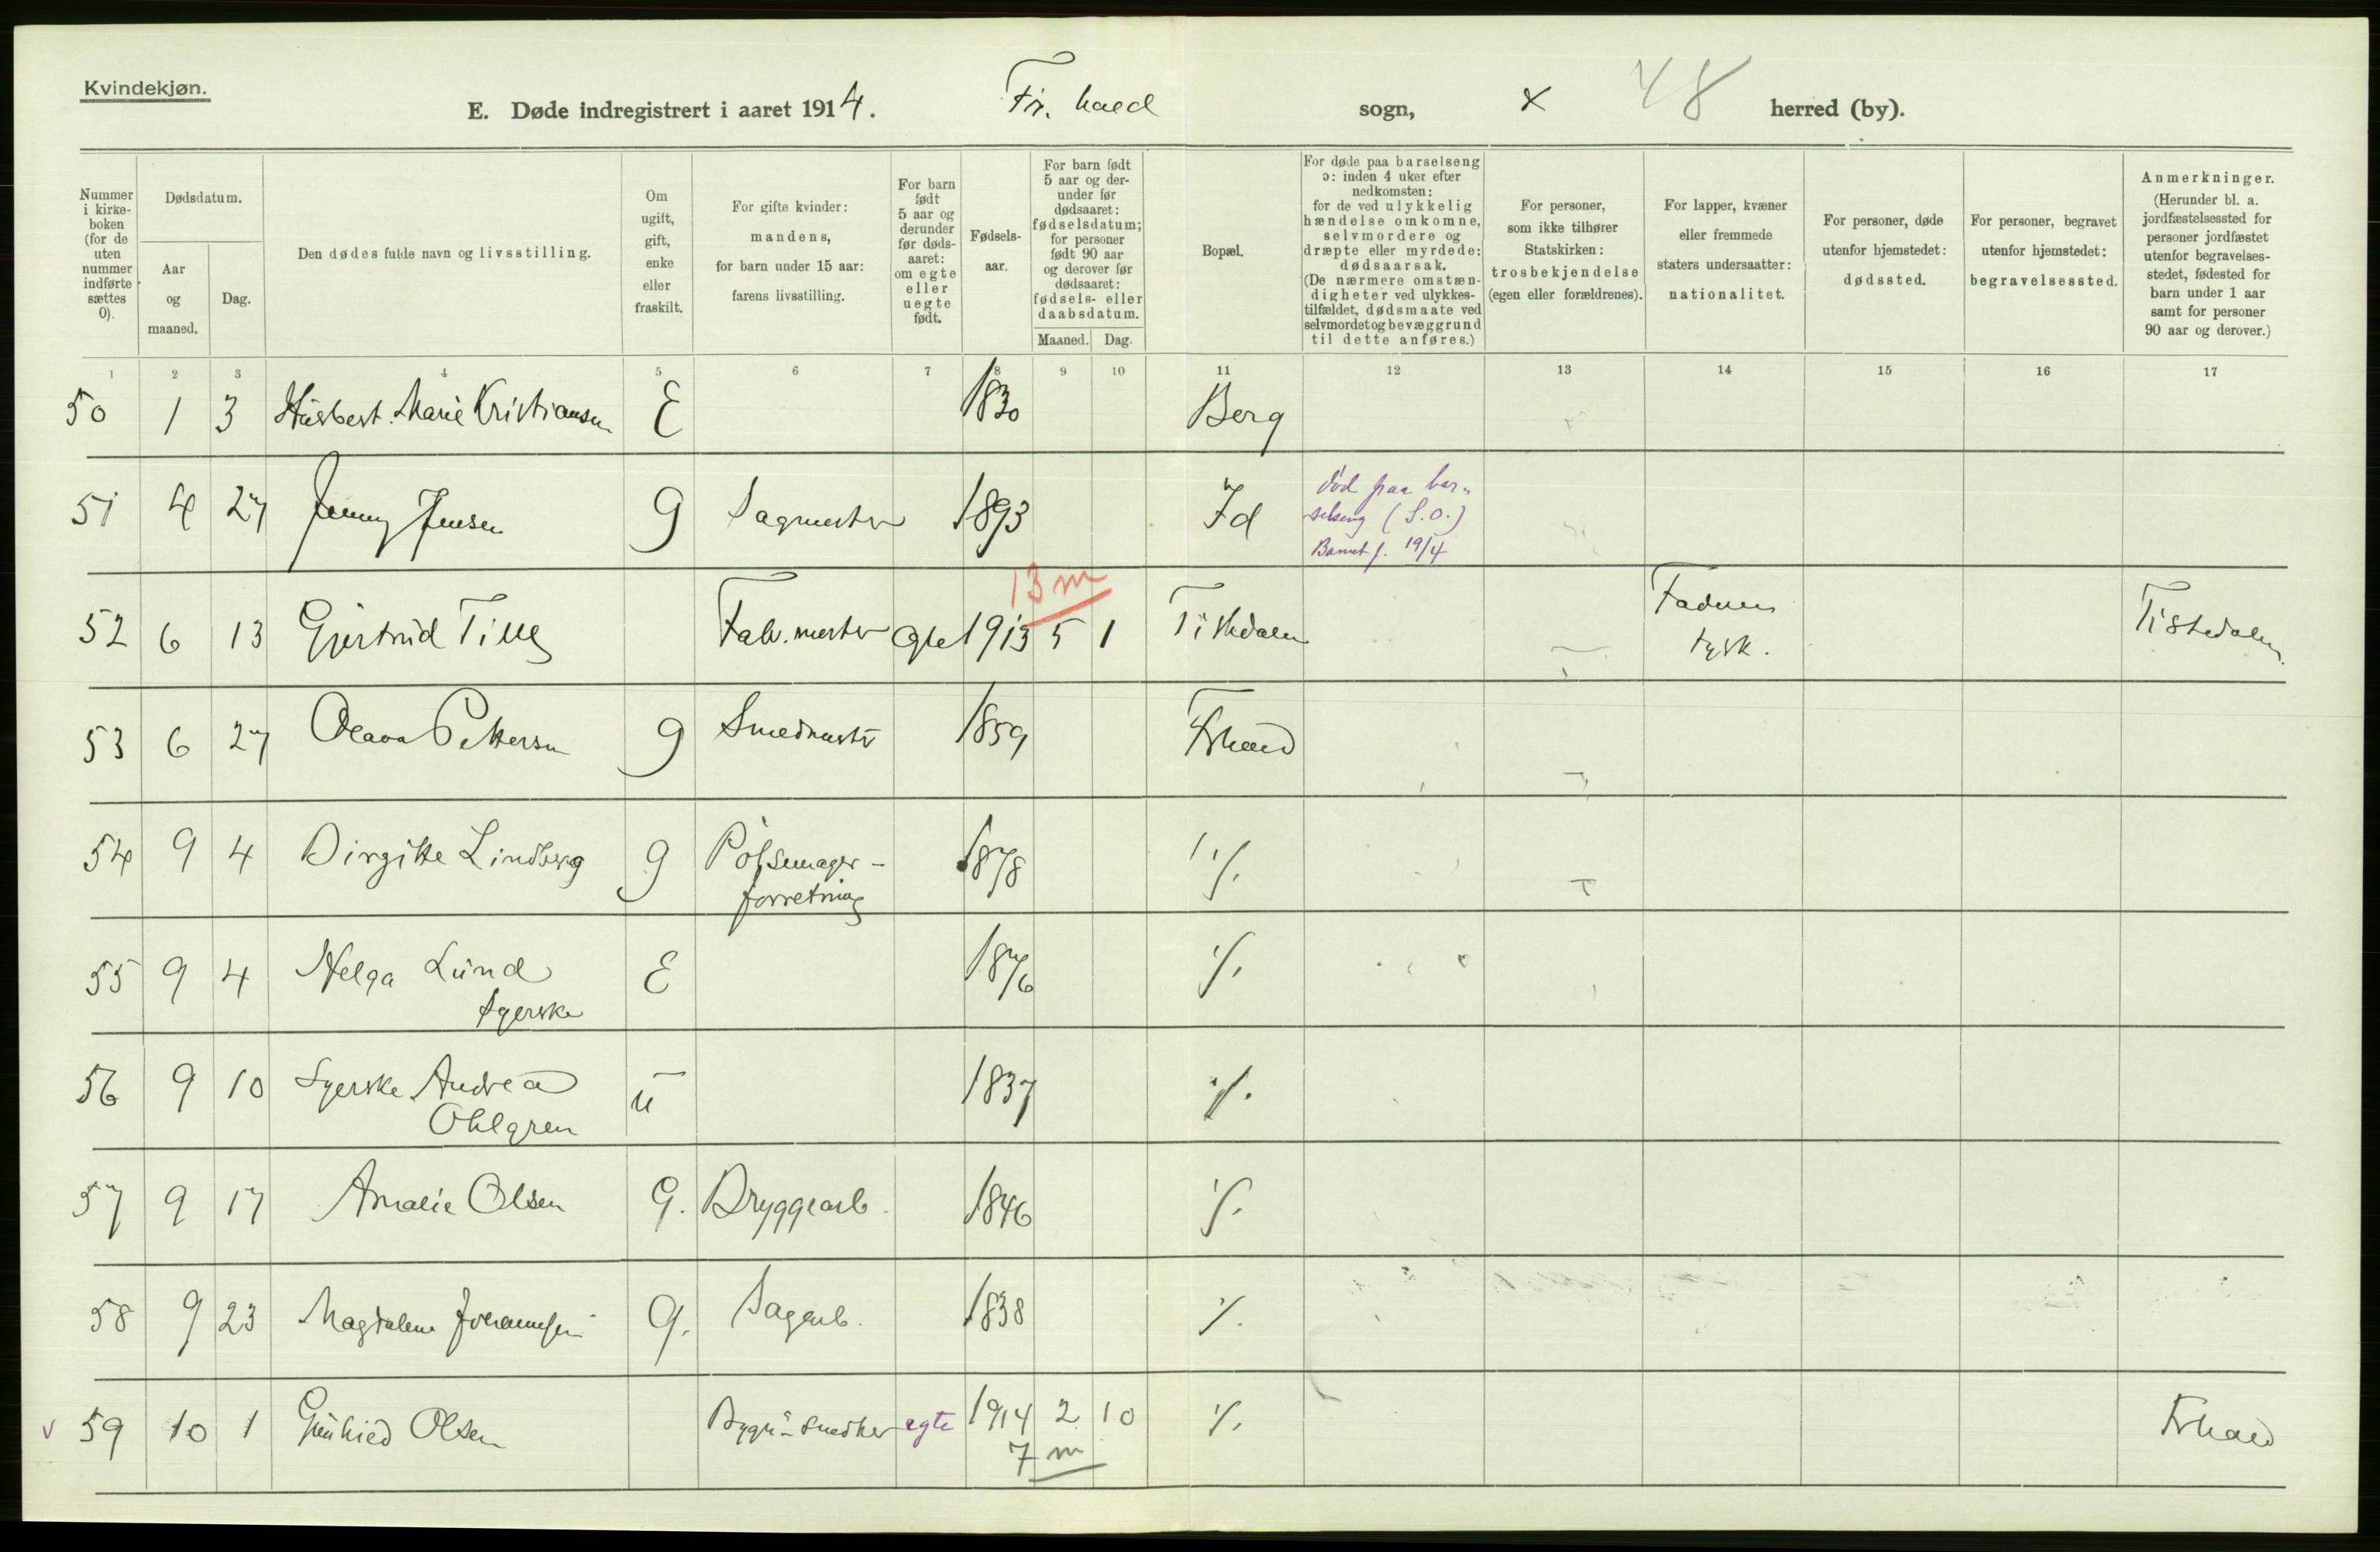 Kvindekjøn.
E. Døde indregistrert i aaret 1914. Fr. hald sogn, x 48 herred (by).
Nummer i kirke-boken (for de uten nummer indførte sættes 0).
Dødsdatum.
Aar og maaned.
Dag.
Den dødes fulde navn og livsstilling.
Om ugift, gift, enke eller fraskilt.
For gifte kvinder: mandens, for barn under 15 aar: farens livsstilling.
For barn født 5 aar og derunder før døds-aaret: om egte eller uegte født.
Fødsels-aar.
For barn født 5 aar og der-under før dødsaaret: fødselsdatum; for personer født 90 aar og derover før dødsaaret: fødsels- eller daabsdatum.
Maaned. Dag.
Bopæl.
For døde paa barselseng ɔ: inden 4 uker efter nedkomsten: for de ved ulykkelig hændelse omkomne, selvmordere og dræpte eller myrdede: dødsaarsak. (De nærmere omstæn-digheter ved ulykkes-tilfældet, dødsmaate ved selvmordet og bevæggrund til dette anføres.)
For personer, som ikke tilhører Statskirken: trosbekjendelse (egen eller forældrenes).
For lapper, kvæner eller fremmede staters undersaatter: nationalitet.
For personer, døde utenfor hjemstedet: dødssted.
For personer, begravet utenfor hjemstedet: begravelsessted.
Anmerkninger. (Herunder bl. a. jordfæstelsessted for personer jordfæstet utenfor begravelses-stedet, fødested for barn under 1 aar samt for personer 90 aar og derover.)
1 2 3 4 5 6 7 8 9 10 11 12 13 14 15 16 17
50 1 3 Marie Kristiansen E 1830 Berg
51 4 27 Jenny Jensen g Sagmester 1893 Id død paa bar-
selseng (S.O.)
Barnet f. 19/4
13 m
52 6 13 Gjertrud Tilly Fabr. mester egte 1913 5 1 Tistedalen Faderen
tysk. Tistedalen.
53 6 27 Olava Pettersen g Smedmestr 1859 Frhald
54 9 4 Birgitte Lindberg g Pølsemager-
forretning 1878 "/.
55 9 4 Helga Lund
Syerske E 1876 "/.
56 9 10 Syerske Andrea
Ohlgren u 1837 "/.
57 9 17 Amalie Olsen g. Bryggearb. 1846 "/.
58 9 23 Magdalene Johannesen g. Sagarb. 1838 "/.
v 59 10 1 Olsen Bygn.snedker egte 1914 2 10 "/. Frhald
7 m